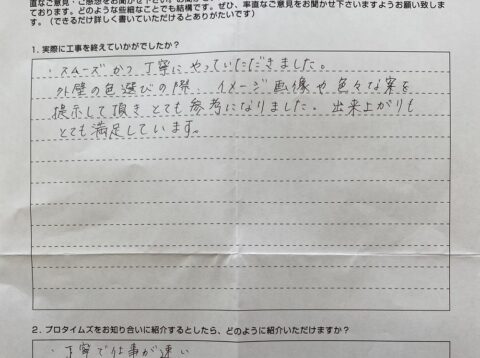 直なご意見・ご感想をお聞かせ下さい。
ております。どのような些細なことでも結構です。ぜひ、率直なご意見をお聞かせ下さいますようお願い致しま
す。(できるだけ詳しく書いていただけるとありがたいです)
1. 実際に工事を終えていかがでしたか？
・スムーズかつ丁寧にやっていただきました。
外壁の色選びの際、イメージ画像や色々な案を
提示して頂きとても参考になりました。出来上がりも
とても満足しています。
2. プロタイムズをお知り合いに紹介するとしたら、どのように紹介いただけますか？
・丁寧で仕事が速い